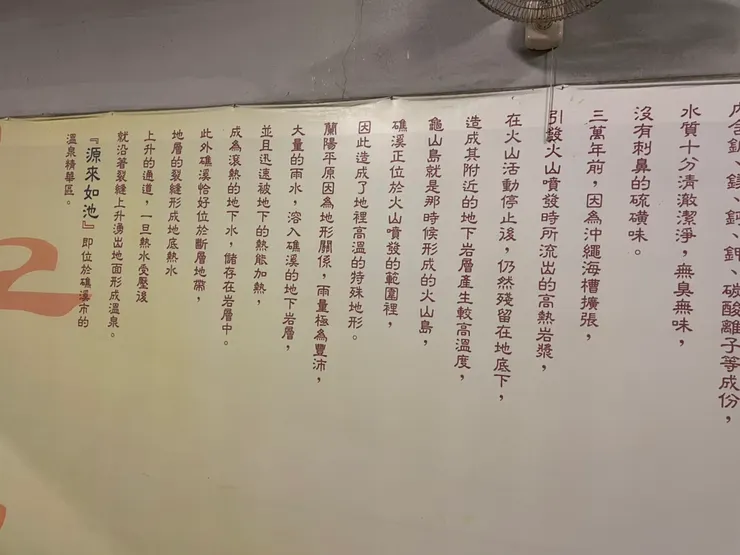 內含鈉、鎂、鈣、鉀、碳酸離子等成份,
水質十分清澈潔淨,無臭無味,
沒有刺鼻的硫磺味。
三萬年前,因為沖繩海槽擴張,
引發火山噴發時所流出的高熱岩漿,
在火山活動停止後,仍然殘留在地底下,
造成其附近的地下岩層產生較高溫度,
龜山島就是那時候形成的火山島,
礁溪正位於火山噴發的範圍裡,
因此造成了地裡高溫的特殊地形。
蘭陽平原因為地形關係,雨量極為豐沛,
大量的雨水,溶入礁溪的地下岩層,
並且迅速被地下的熱能加熱,
成為滾熱的地下水,儲存在岩層中。
此外礁溪恰好位於斷層地帶,
地層的裂縫形成地底熱水
上升的通道,一旦熱水受壓後
就沿著裂縫上升湧出地面形成溫泉。
『源來如池』即位於礁溪市的
溫泉精華區。